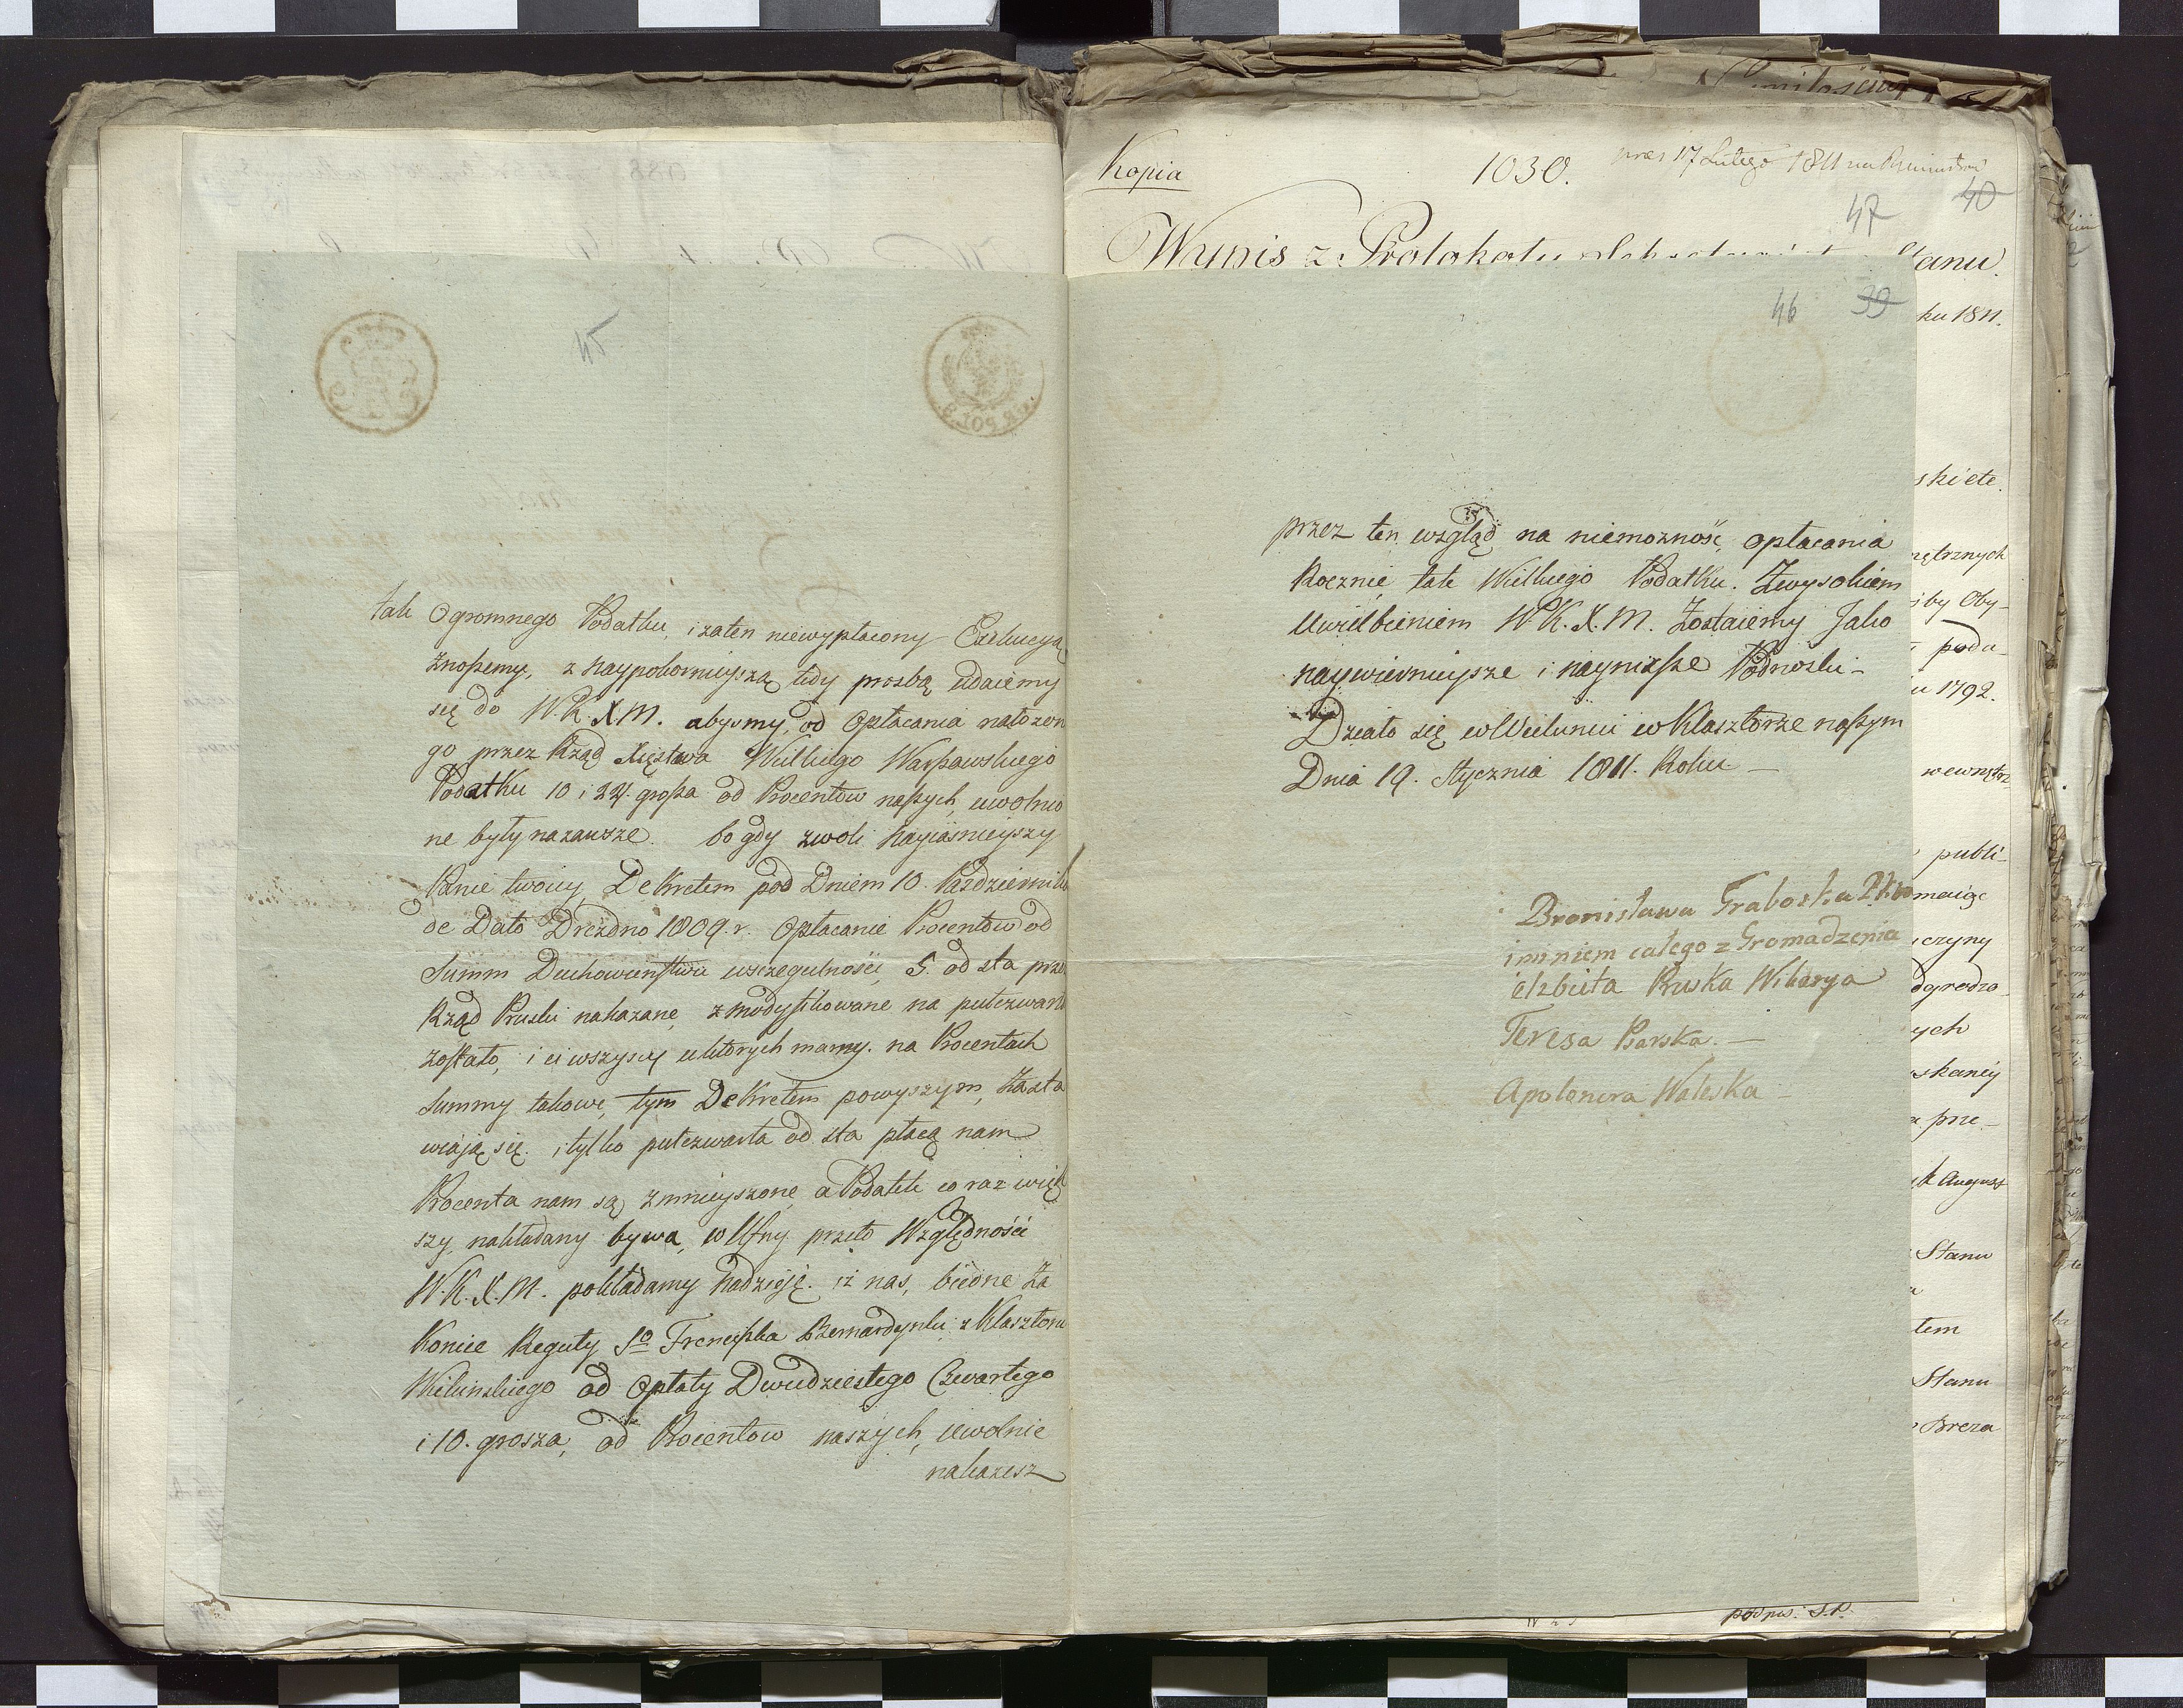 45
tak Ogromnego Podatku, i zaten niewypłacony Exekucyą
Znoszemy, z Naypokornieyszą tedy prozbą udaiemy
się do W. K. X. M. abysmy, od Opłacania nałożon
go przez Rząd Xięstwa Wielkiego Warszawskiego
Podatku 10 i 24. grosza od Procentow naszych, uwolnio
ne były nazawsze. bo gdy zwoli Nayiasnieyszy
Panie twoiey, Dekretem pod Dniem 10. Pazdziernika
de Dato Drezdno 1809. r. Opłacanie Procentow od
Summ Duchowienstwu wszczegulności, 5. od sta prze
Rząd Pruski nakazane, zmodyfikowane na pułczwart
zostało, i ci wszyscy u ktorych mamy. na Procentach
Summy takowe, tym Dekretem powyszym, Zasta
wiaią się. i tylko pułczwarta od sta płacą nam
Procenta nam są zmnieyszone a Podatek co raz więk
szy, nakładany bywa, w Ufny przeto Względności
W. K. X. M. pokładamy Nadzieję. iż nas, biedne Za
Konice Reguły So Franciszka Bernardynki z Klasztoru
Wielunskiego od Opłaty Dwudziestego Czwartego
i 10. grosza, od Procentow naszych, uwolnic
nakazesz
Kopia
1030.
17 Lutego 1811
47 40
Wypis z Protokołu Stanu.
46 39
ku 1811.
przez ten wzgląd na niemożność opłacania
Rocznie tak Wielkiego Podatku. Zwysokiem
Uwielbieniem W. K. X. M. Zostaiemy Jako
naywiernieysze i naynizsze Podnozki -
Działo się w Wieluniu w Klasztorze naszym
Dnia 19. Stycznia 1811. Roku -
Bronisława Graboska
iminiem całego z Gromadzenia
elzbieta Ruska Wikarya
Teresa Psarska. -
Apolonira Waleska -
ski etc.
nętrznych
iby Oby-
podu-
u 1792.
wewnętrz
publi-
maiąc
czyny
dgrodzo
ych
skaney
prze-
k August
Stanu
tem
Stanu
Breza
podpis. S. P.